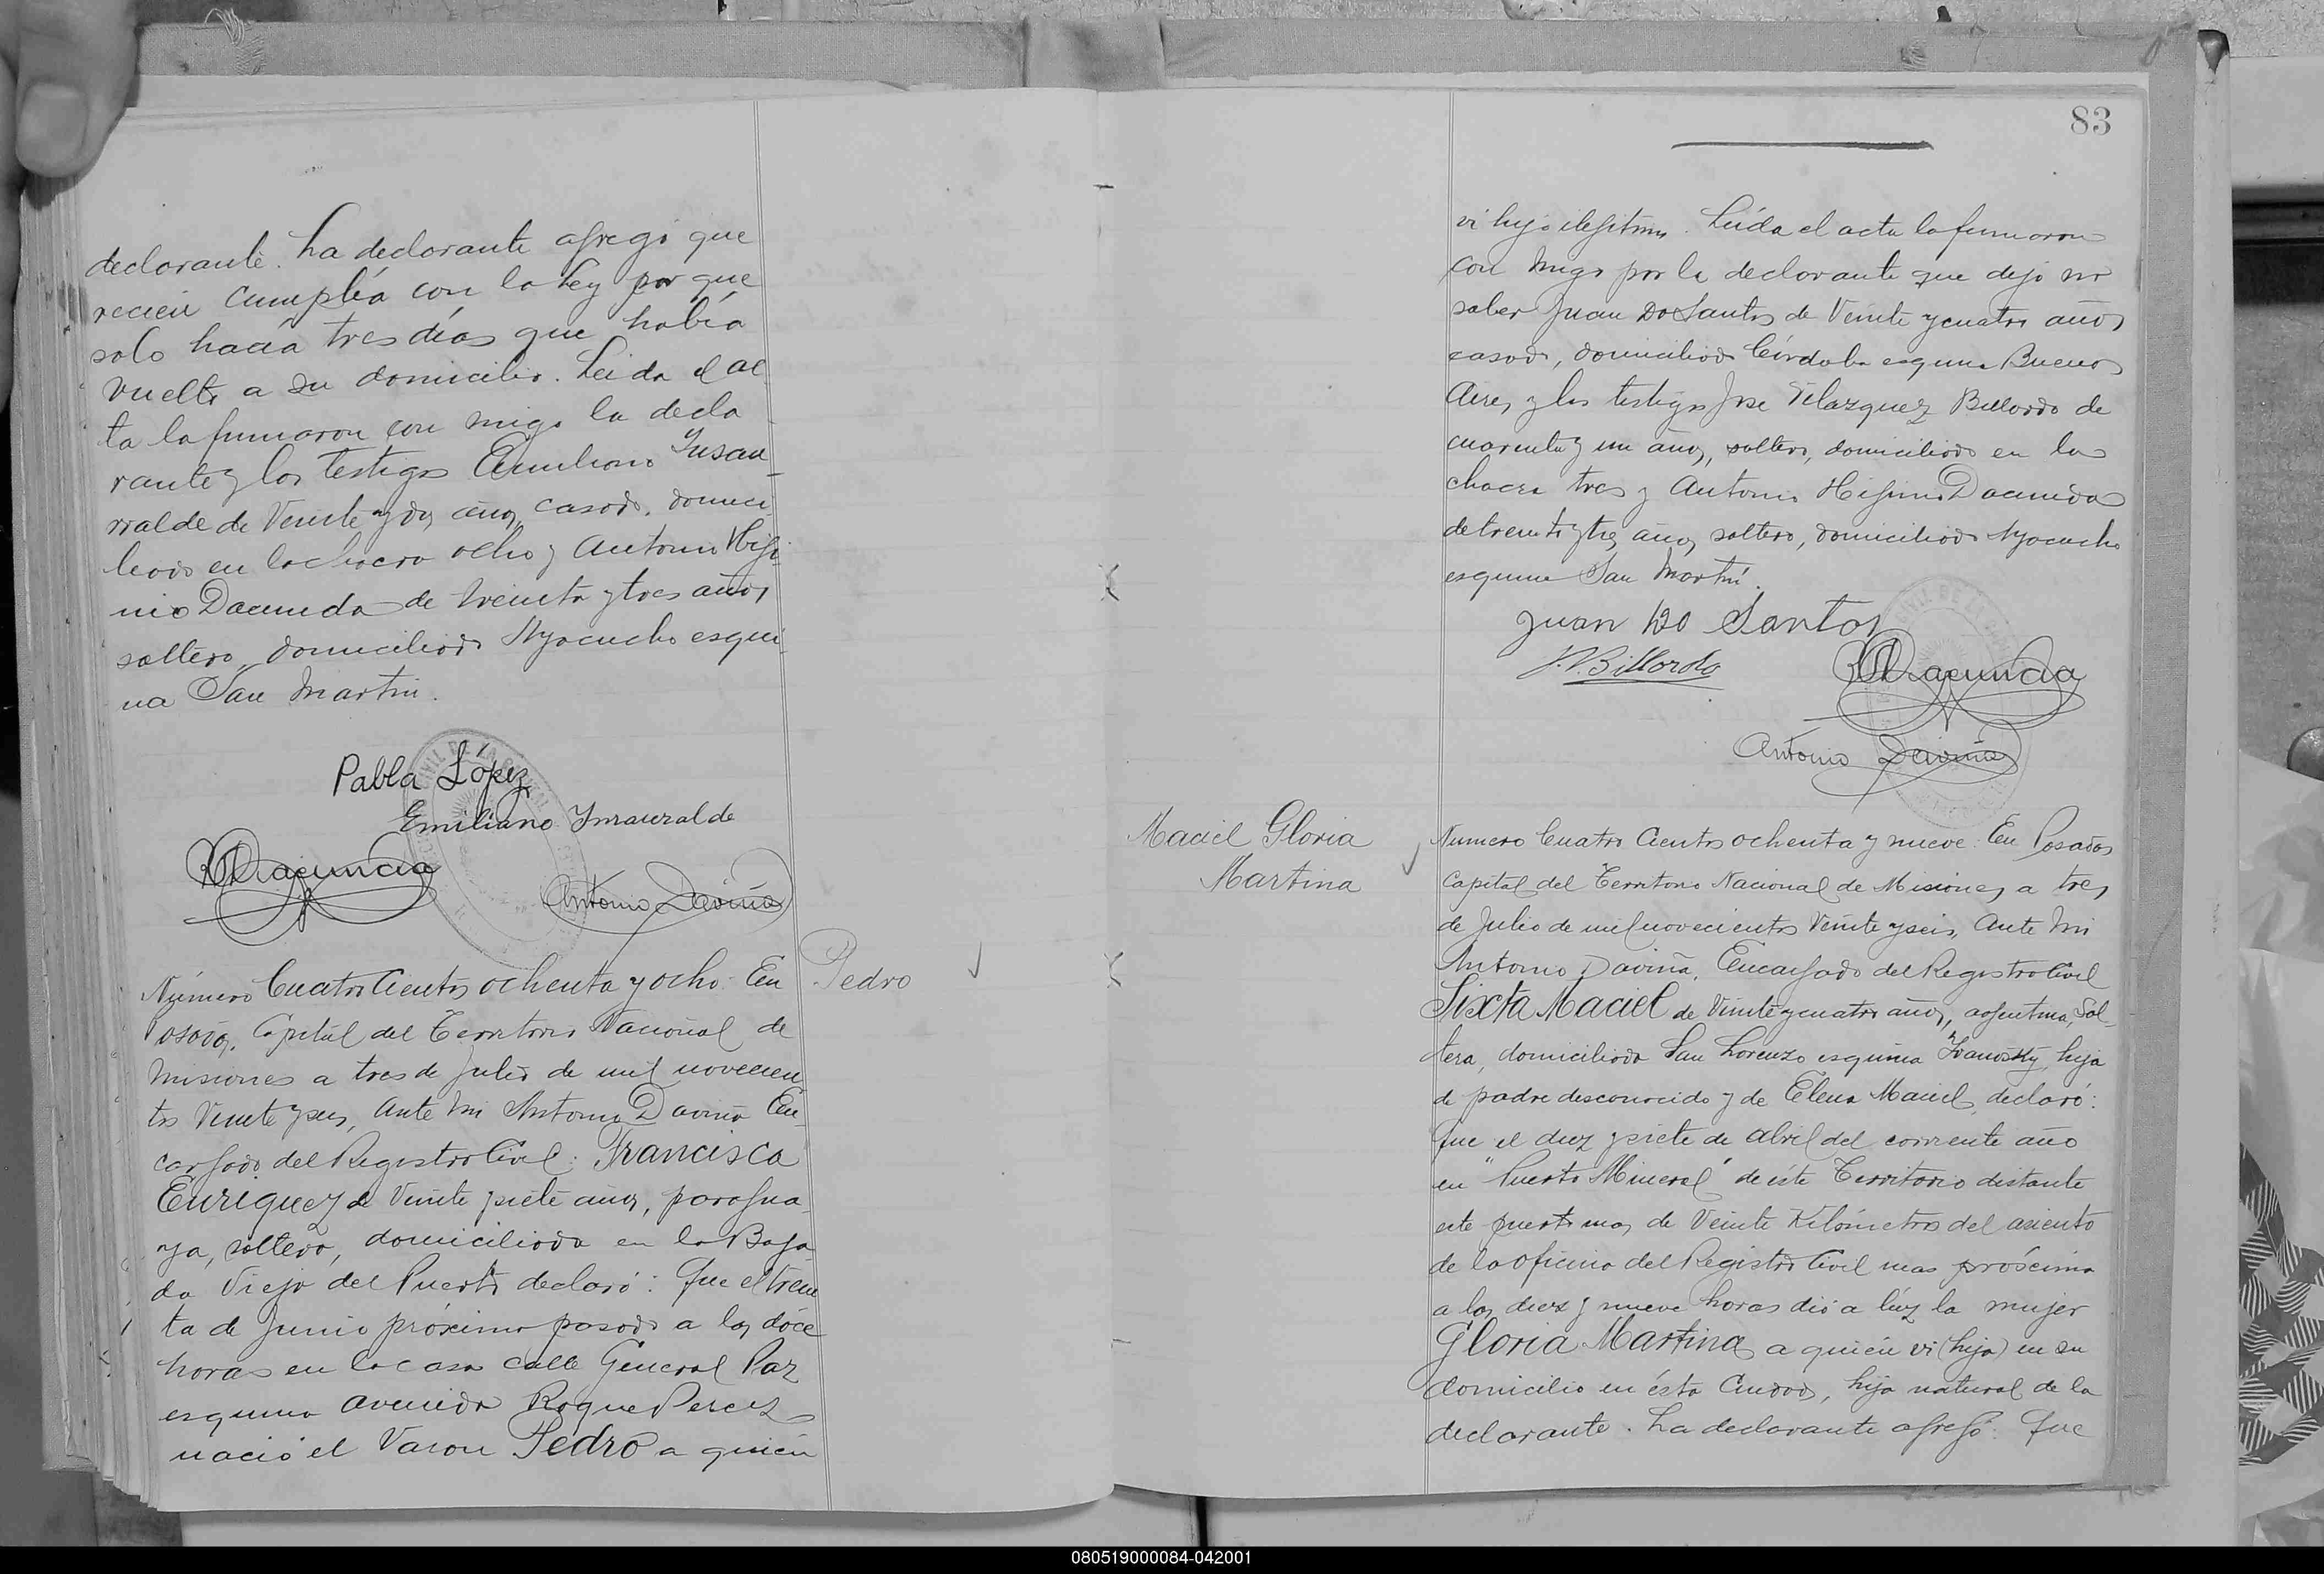 declarante. La declarante agregó que
recien cumplía con la ley por que
solo hacía tres días que había
vuelto a su domicilio. Leida el ac
ta la firmaron con migo la decla
rante y los testigos Emiliano Insau-
rralde de Veinte y dos años, casado, domici
liado en la chacra ocho y Antonio Higi-
nio Dacunda de treinta y tres años,
soltero, domiciliado Ayacucho esqui-
na San Martin.
Pabla López
Emiliano Insauralde
Dacunda
Antonio Daviña
Número Cuatro Cientos ochenta y ocho: En
Pedro
Posadas, Capital del Territorio Nacional de
Misiones a tres de Julio de mil novecien
tos Veinte y seis, Ante mi Antonio Daviña En-
cargado del Registro Civil: Francisca
Enriquez de Veinte y siete años, paragua
ya, soltera, domiciliada en la Baja
da Vieja del Puerto declaró: Que el trein
ta de Junio próximo pasado a las doce
horas en la casa calle General Paz
esquina avenida Roque Perez
nació el Varon Pedro a quién
83
vi hijo ilegitimo. Leída el acta la firmaron
con migo por la declarante que dijo no
saber Juan Do Santos de Veinte y cuatro años
casado, domiciliado Córdoba esquina Buenos
Aires y los testigos Jose Velazquez Billordo de
cuarenta y un años, soltero, domiciliado en la
chacra tres y Antonio Higinio Dacunda
de treinta y tres años, soltero, domiciliado Ayacucho
esquina San Martín.
Juan Do Santos
J.V. Billordo
Dacunda
Antonio Daviña
Maciel Gloria
Martina
Numero Cuatro Cientos ochenta y nueve: En Posadas
Capital del Territorio Nacional de Misiones, a tres
de Julio de mil novecientos Veinte y seis, Ante mi
Antonio Daviña, Encargado del Registro Civil
Sixta Maciel de Veinte y cuatro años, argentina, Sol-
tera, domiciliada San Lorenzo esquina Ivanosky, hija
de padre desconocido y de Elena Maciel, declaró:
Que el diez y siete de Abril del corriente año
en "Puerto Mineral" de éste Territorio distante
este puerto mas de Veinte Kilómetros del asiento
de la oficina del Registro Civil mas próximo
a las diez y nueve horas dió a lúz la mujer
Gloria Martina a quién vi (hija) en su
domicilio en ésta Ciudad, hija natural de la
declarante. La declarante agregó: Que
080519000084-042001